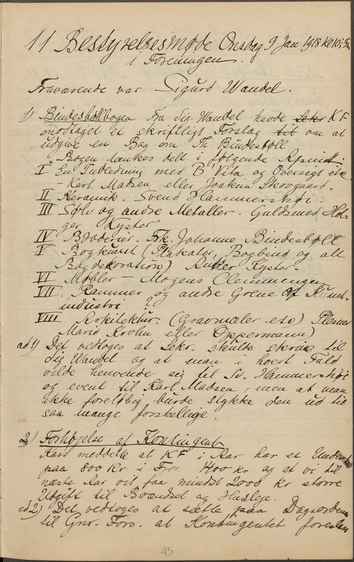 11 Bestyrelsesmøde Onsdag 9 Jan 1918 Kl 10
i Foreningen.
Fraværende var Sigurd Wandel.
1) Bindesbøllbogen Fra Sig Wandel havde KF
modtaget et skriftligt Forslag om at
udgive en Bog om Th Bindesbøll
Bogen tænkes delt i følgende Afsnit
I En Indledning med B Vita og Oversigt
Karl Madsen eller Joakim Skovgaard.
II Keramik. Svend Hammershøi.
III Sølv og andre Metaller. Guldsmed Hol-
ger Kyster.
IV Broderier. Frk. Johanne Bindesbøll
V Bogkunst (Plakater, Bogbind og alt
Bogdekoration) Kyster.
VI Møbler – Mogens Clemmensen
VII. Rammer og andre Grene af Kunst-
industri ?
VIII. Arkitektur. (Gravmæler etc)
Martin Nyrop eller
ad 1) Det vedtoges at Sekr. skulde skrive til
Sig Wandel og at man i hvert Fald
vilde henvende sig til Sv. Hammershøi
og event til Karl Madsen, men at man
ikke foreløbig burde stykke den ud til
saa mange forskellige.
2) Forhøjelse af Kontingent
Kass meddelte at KF i Aar har et
paa 800 Kr i Fjor 400 Kr og at vi til
næste Aar vil faa mindst 2000 Kr større
Udgift til Brændsel og Husleje.
ad 2) Det vedtoges at sætte paa Dagsorden
til Gnr. Fors. at Kontingentet
45